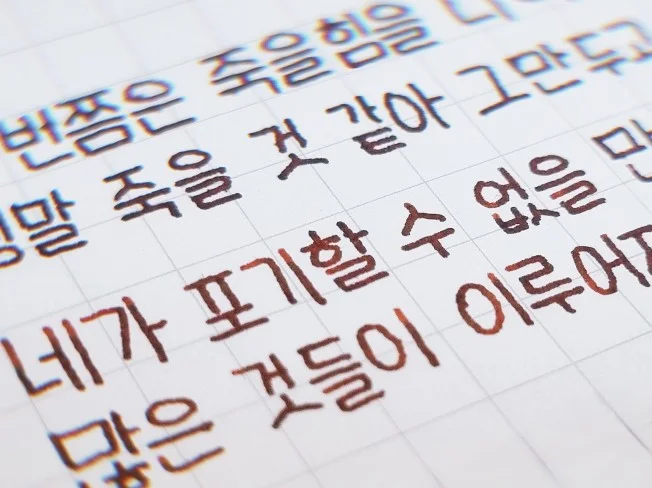 번쯤은 죽을힘을
정말 죽을 것 같아 그만두고
네가 포기할 수 없을
많은 것들이 이루어